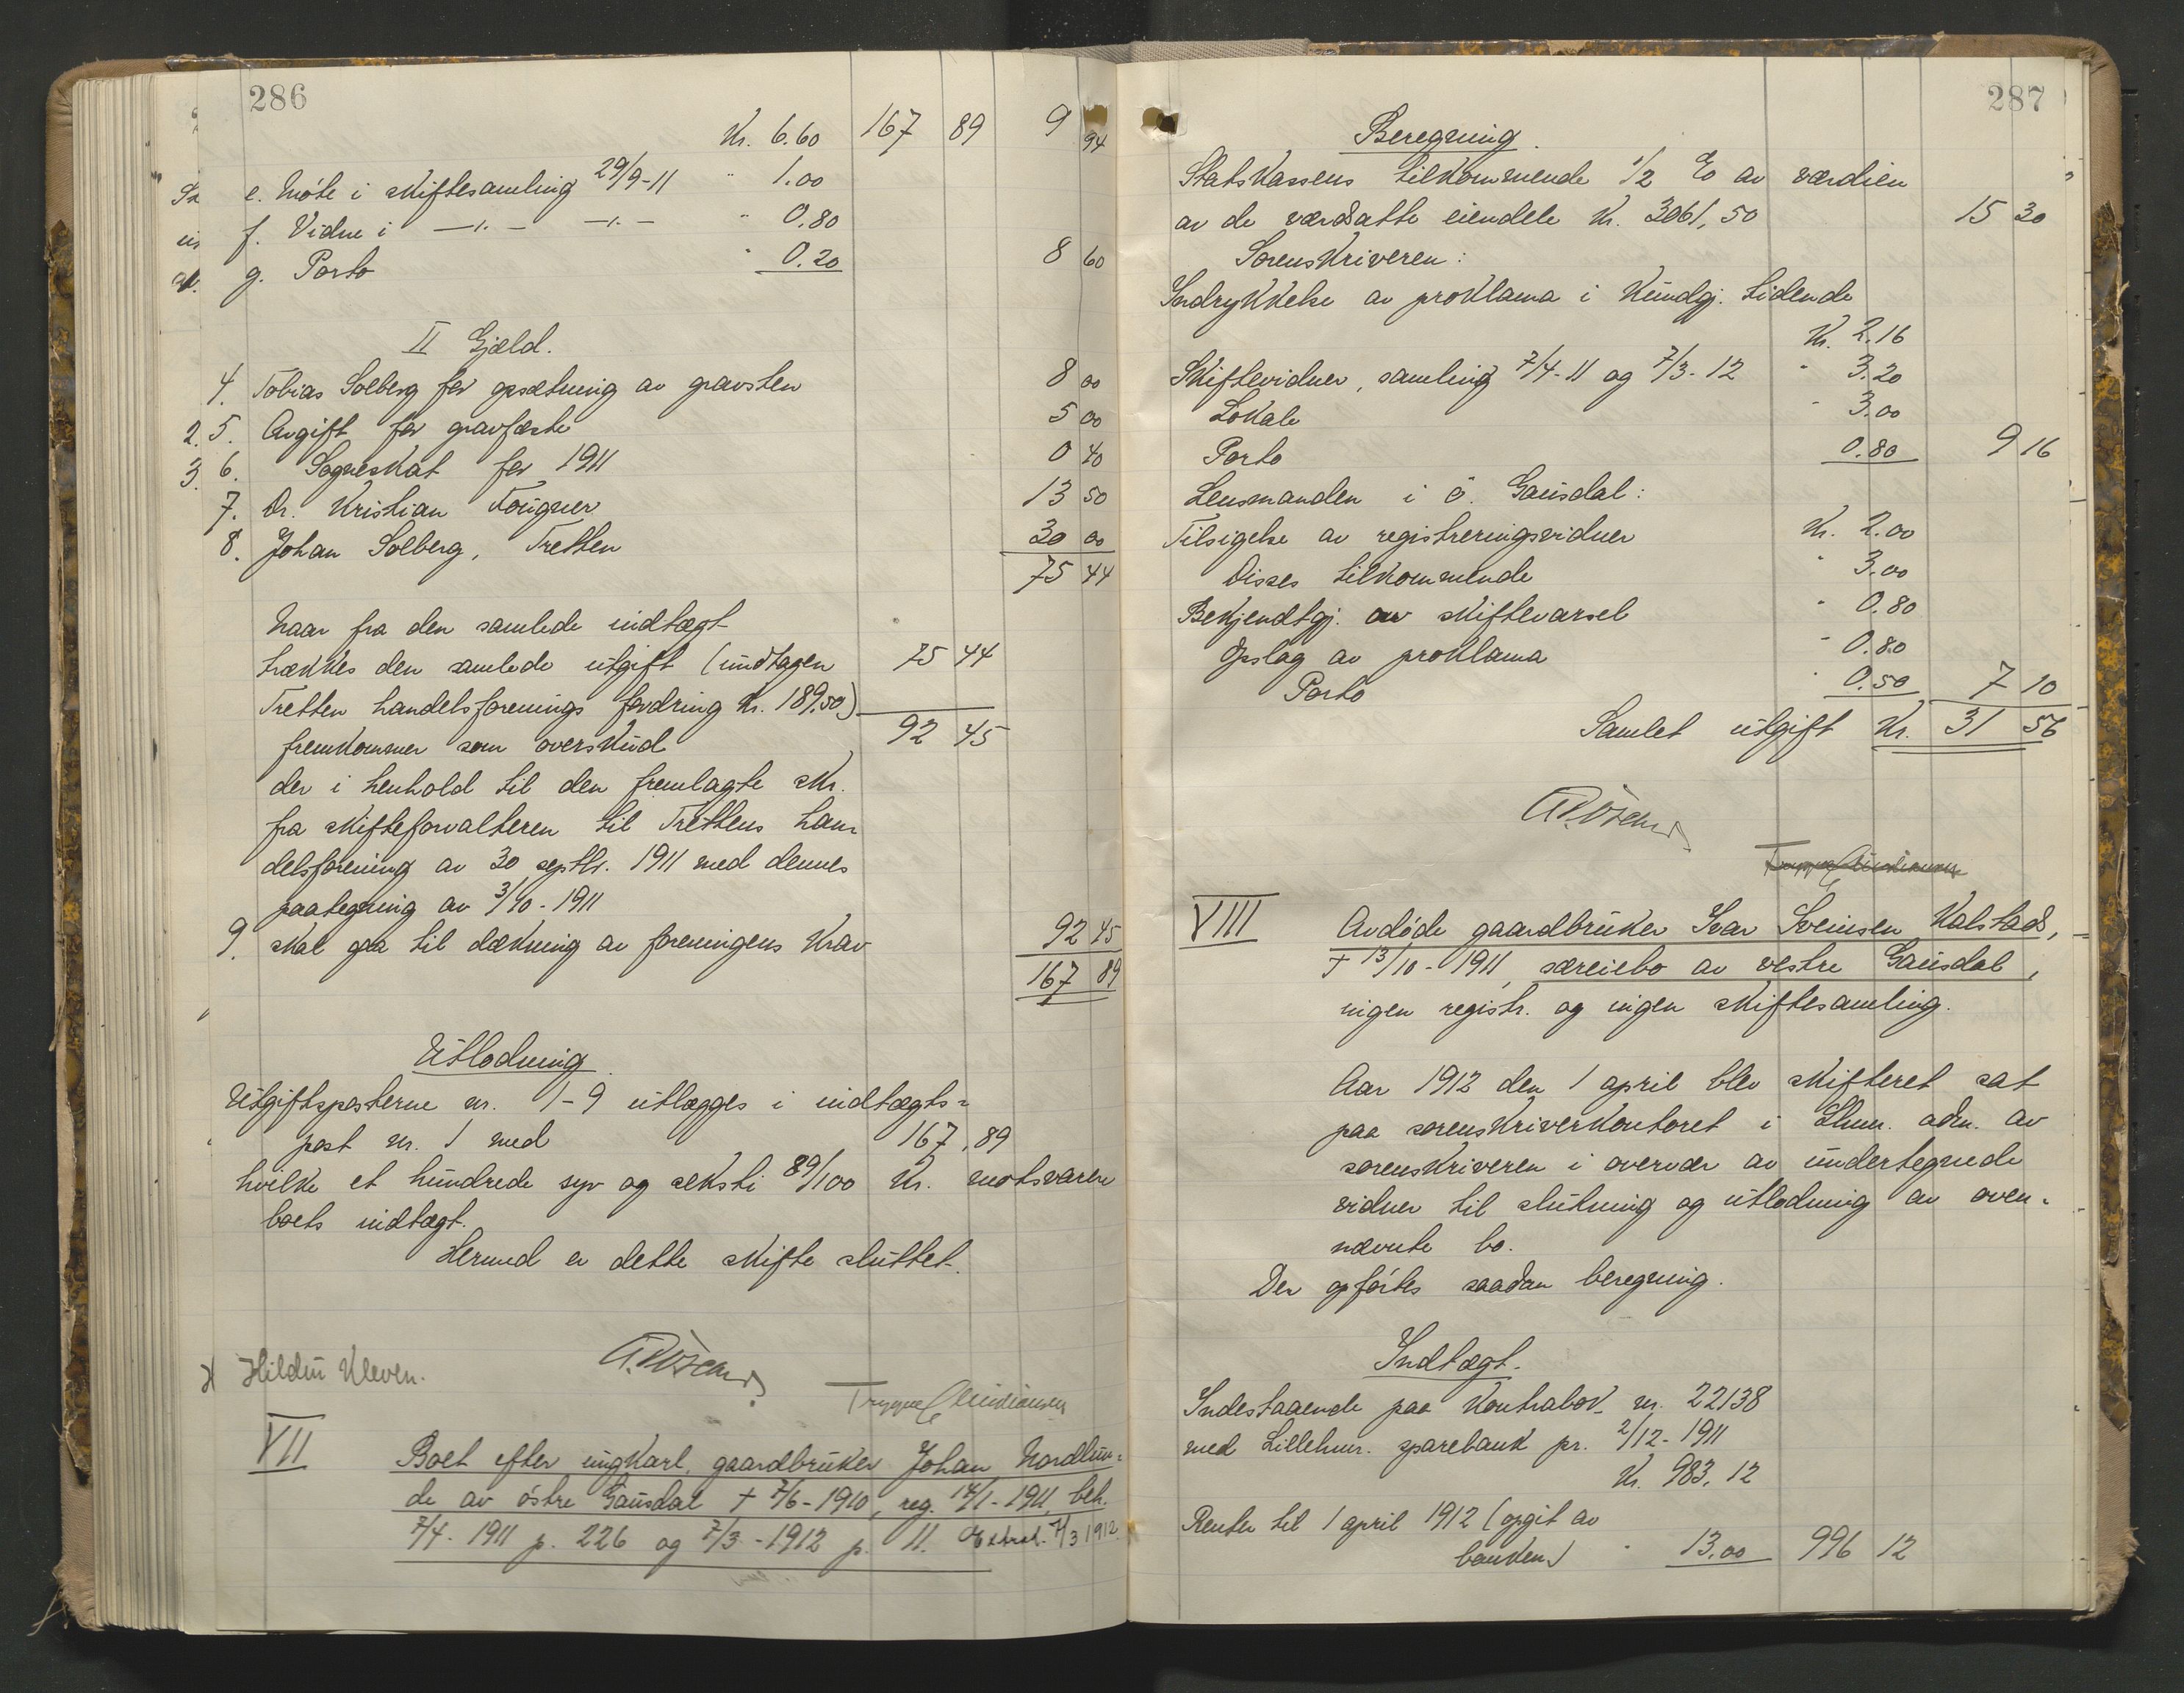 286
Kr. 6.60 167 89 9 94
e. Møte i skiftesamling 29/9-11 " 1.00
f. Vidne i —"— —"— " 0.80
g. Porto " 0.20 8 60
II Gjæld.
4. Tobias Solberg for opsætning av gravsten 8 00
2. 5. Avgift for gravfæste 5 00
3. 6. Sogneskat for 1911 0 40
7. Dr. Kristian Fougner 13 50
8. Johan Solberg, Tretten 30 00
75 44
Naar fra den samlede indtægt
trækkes den samlede utgift (undtagen 75 44
Tretten handelsforenings fordring kr. 189.50)
fremkommer som overskud 92 45
der i henhold til den fremlagte skr.
fra skifteforvalteren til Trettens han-
delsforening av 30 septbr. 1911 med dennes
paategning av 3/10-1911
9. skal gaa til dækning av foreningens krav 92 45
167 89
Utlodning.
Utgiftsposterne nr. 1-9 utlægges i indtægts=
post nr. 1 med 167,89
hvilke et hundrede syv og seksti 89/100 kr. motsvarer
boets indtægt.
Hermed er dette skifte sluttet.
Hildu Kleven.
VII Boet efter ungkarl, gaardbruker Johan Nordlun=
de av østre Gausdal † 7/6-1910, reg. 14/1-1911, beh.
7/4-1911 p. 226 og 7/3-1912 p. 11. Ekstrah. 7/3 1912.
287
Beregning.
Statskassens tilkommende 1/2 % av værdien
av de værdsatte eiendele kr. 3061,50 15 30
Sorenskriveren:
Indrykkelse av proklama i Kundgj. tidende
Kr. 2.16
Skiftevidner, samling 7/4-11 og 7/3-12 " 3.20
Lokale " 3.00
Porto 0.80 9 16
Lensmanden i ö. Gausdal:
Tilsigelse av registreringsvidner Kr. 2.00
Disses tilkommende " 3.00
Bekjendtgj. av skiftevarsel " 0.80
Opslag av proklama " 0.80
Porto " 0.50 7 10
Samlet utgift Kr. 31 56
VIII Avdøde gaardbruker Ivar Sveinsen Kalstad,
† 13/10-1911, særeiebo av vestre Gausdal,
ingen registr. og ingen skiftesamling.
Aar 1912 den 1 april blev skifteret sat
paa sorenskriverkontoret i Lhmr. adm. av
sorenskriveren i overvær av undertegnede
vidner til slutning og utlodning av oven-
nævnte bo.
Der opførtes saadan beregning.
Indtægt.
Indestaaende paa kontrabok nr. 22138
med Lillehmr. sparebank pr. 2/12-1911
Kr. 983,12
Renter til 1 april 1912 (opgit av
banken) " 13.00 996 12